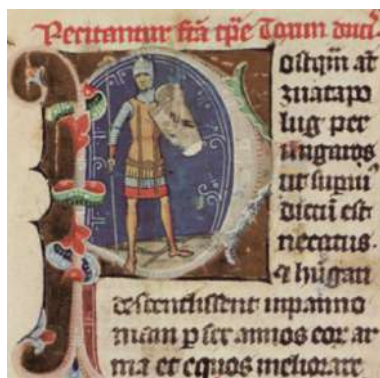 Recitantur fc̄a tp̄e Toxun duciˢ
oſtqm̄ aūt
zuatapo
lug per
ungaros
ut supīus
dictū eſt
necatus.
⁊ hūgari
deſcendiſſent inpanno
niam p ſex annos eorⁱ ar
ma et equos meliorare